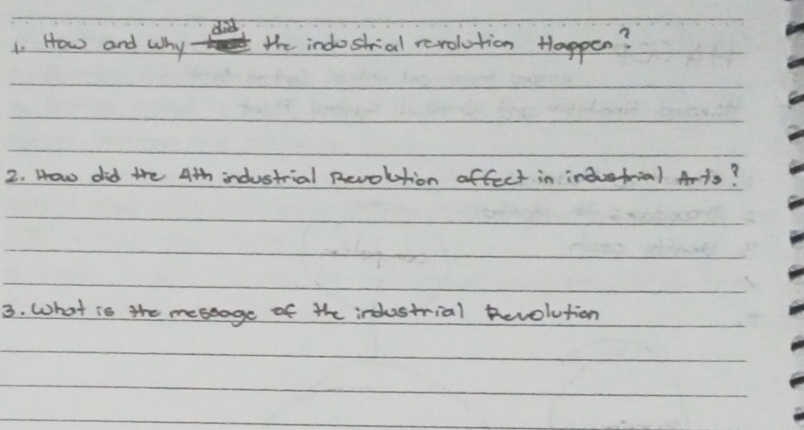 1. How and why did the industrial revolution Happen?
2. How did the 4th industrial Revolution affect in industrial Arts?
3. What is the message of the industrial Revolution